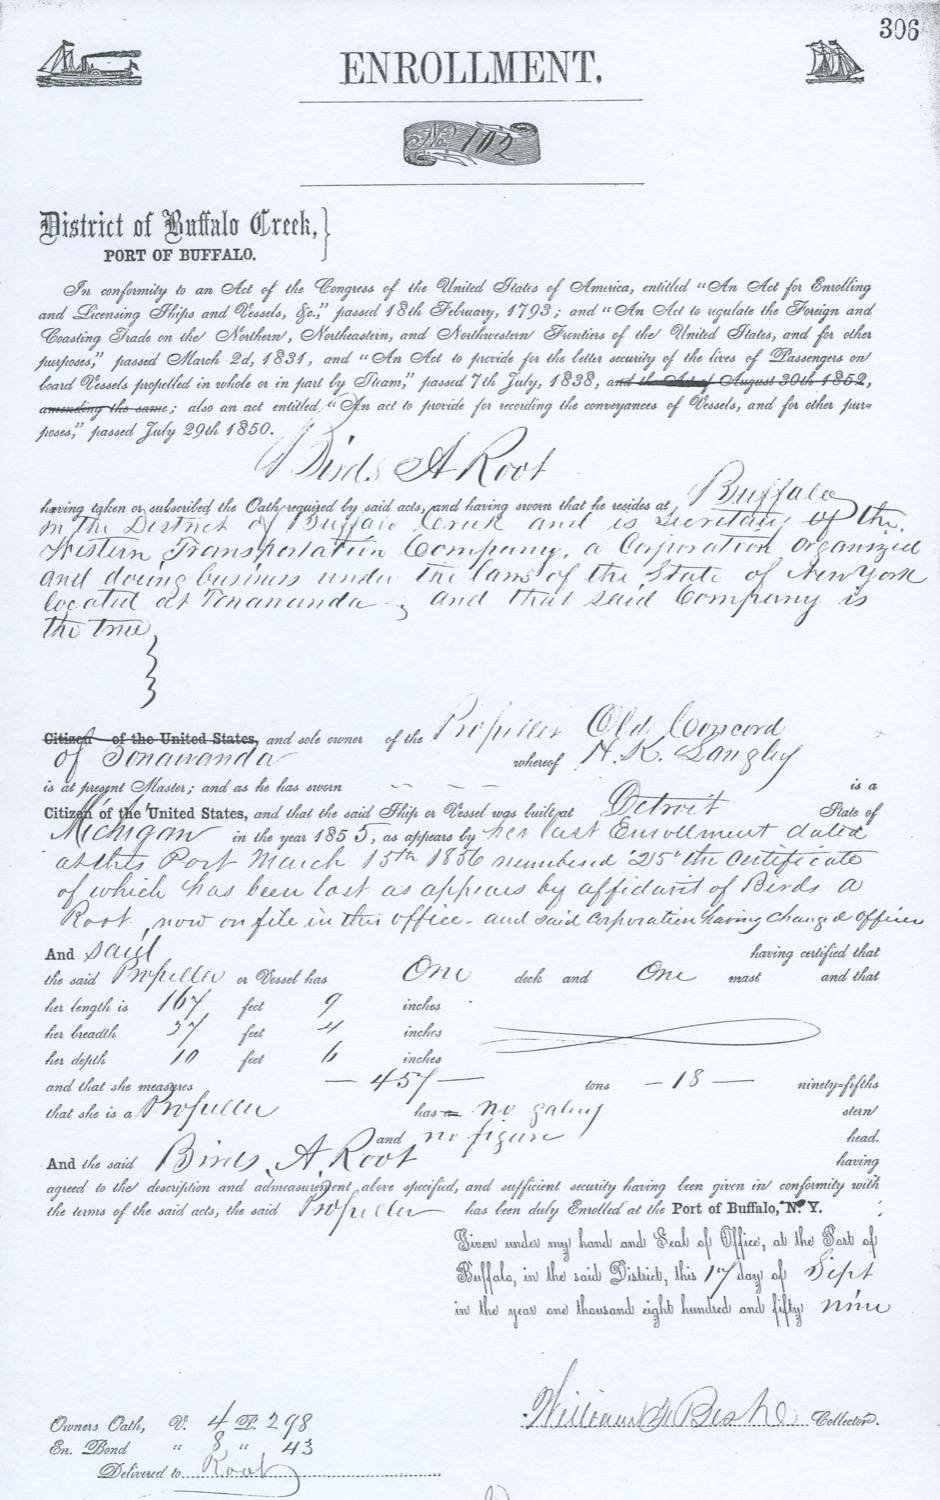 306
ENROLLMENT.
No. 102
District of Buffalo Creek,
PORT OF BUFFALO.
In conformity to an Act of the Congress of the United States of America, entitled "An Act for Enrolling
and Licensing Ships and Vessels, &c.," passed 18th February, 1793; and "An Act to regulate the Foreign and
Coasting Trade on the Northern, Northeastern, and Northwestern Frontiers of the United States, and for other
purposes," passed March 2d, 1831, and "An Act to provide for the better security of the lives of Passengers on
board Vessels propelled in whole or in part by Steam," passed 7th July, 1838, and the Act of August 30th 1852,
amending the same; also an act entitled, "An act to provide for recording the conveyances of Vessels, and for other pur=
poses," passed July 29th 1850.
Birds A Root
having taken or subscribed the Oath required by said acts, and having sworn that he resides at Buffalo
in the District of Buffalo Creek and is Secretary of the
Western Transportation Company, a Corporation organized
and doing business under the laws of the State of New York
located at Tonawanda, and that said Company is
the true
Citizen of the United States, and sole owner of the Propeller Old Concord
of Tonawanda whereof H. K. Langley
is at present Master; and as he has sworn is a
Citizen of the United States, and that the said Ship or Vessel was built at Detroit State of
Michigan in the year 1855, as appears by her last Enrollment dated
at this Port March 15th 1856 numbered "25" the certificate
of which has been lost as appears by affidavit of Birds A
Root, now on file in this office - and said corporation having changed officers
And said having certified that
the said Propeller or Vessel has One deck and One mast and that
her length is 167 feet 9 inches
her breadth 27 feet 4 inches
her depth 10 feet 6 inches
and that she measures — 457 — tons — 18 — ninety=fifths
that she is a Propeller has a no galley stern
and no figure head.
And the said Birds A Root having
agreed to the description and admeasurement above specified, and sufficient security having been given in conformity with
the terms of the said acts, the said Propeller has been duly Enrolled at the Port of Buffalo, N. Y.
Given under my hand and Seal of Office, at the Port of
Buffalo, in the said District, this 17 day of Sept
in the year one thousand eight hundred and fifty nine
William Collector.
Owners Oath, V. 4 P. 298
En. Bond " 8 " 43
Delivered to Root